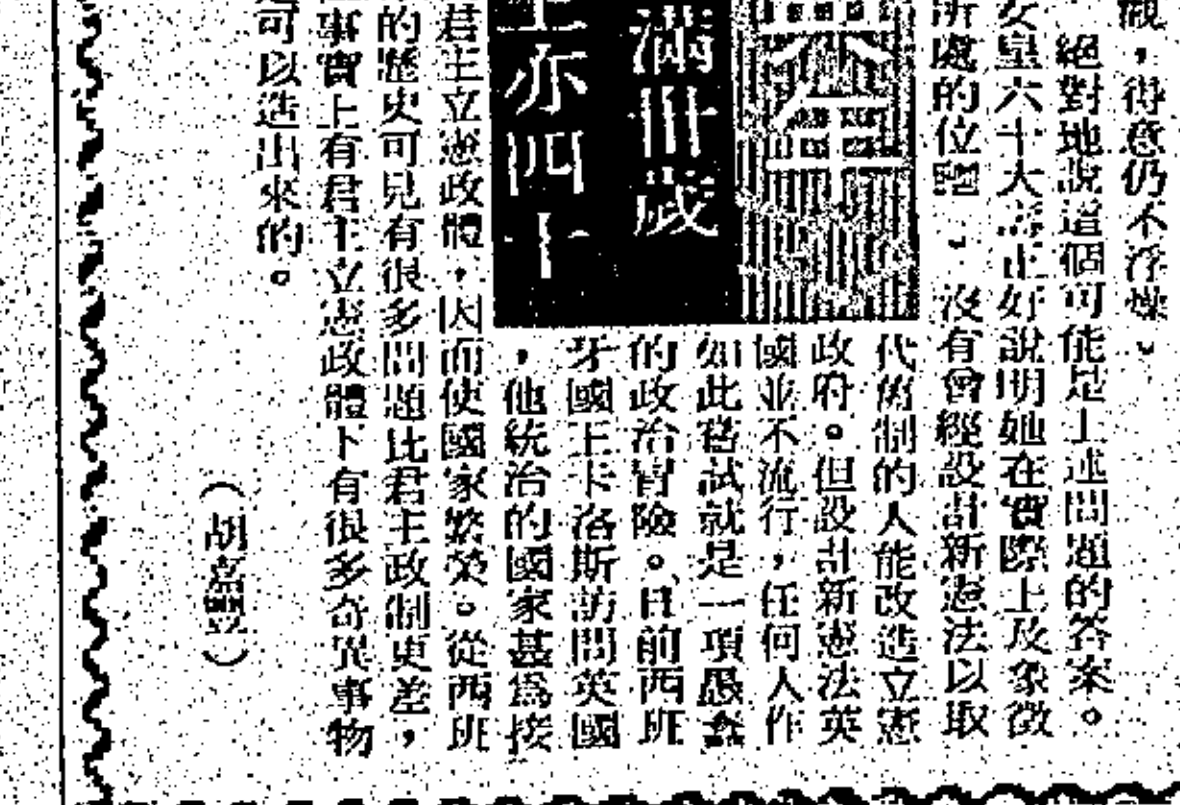 觀，得意仍不浮燥。
絕對地說這個可能是上述問題的答案。
女皇六十大壽正好說明她在實際上及象徵
所處的位置。沒有曾經設計新憲法以取
代舊制的人能改造立憲
政府。但設計新憲法英
國並不流行，任何人作
如此嘗試就是一項愚蠢
的政治冒險。目前西班
牙國王卡洛斯訪問英國
，他統治的國家甚為接
君主立憲政體，因而使國家繁榮。從西班
的歷史可見有很多問題比君主政制更差，
事實上有君主立憲政體下有很多奇異事物
可以造出來的。
年
滿卅歲
亦四十
（胡嘉豐）